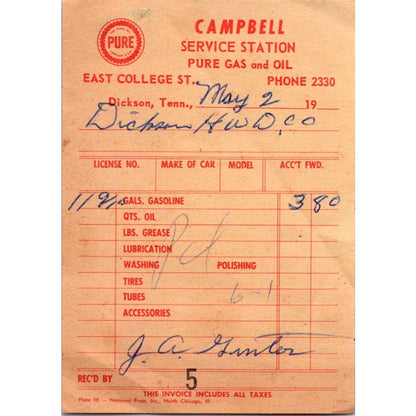 PURE
CAMPBELL
SERVICE STATION
PURE GAS and OIL
EAST COLLEGE ST., PHONE 2330
Dickson, Tenn., May 2 19
Dickson HWD, CO
LICENSE NO. MAKE OF CAR MODEL ACC'T FWD.
11 9/10 GALS. GASOLINE 3 80
QTS. OIL
LBS. GREASE
LUBRICATION
WASHING POLISHING
TIRES
TUBES 6-1
ACCESSORIES
Pd
J. A. Gunter
REC'D BY 5
THIS INVOICE INCLUDES ALL TAXES
Plate EE - National Press, Inc., North Chicago, Ill.